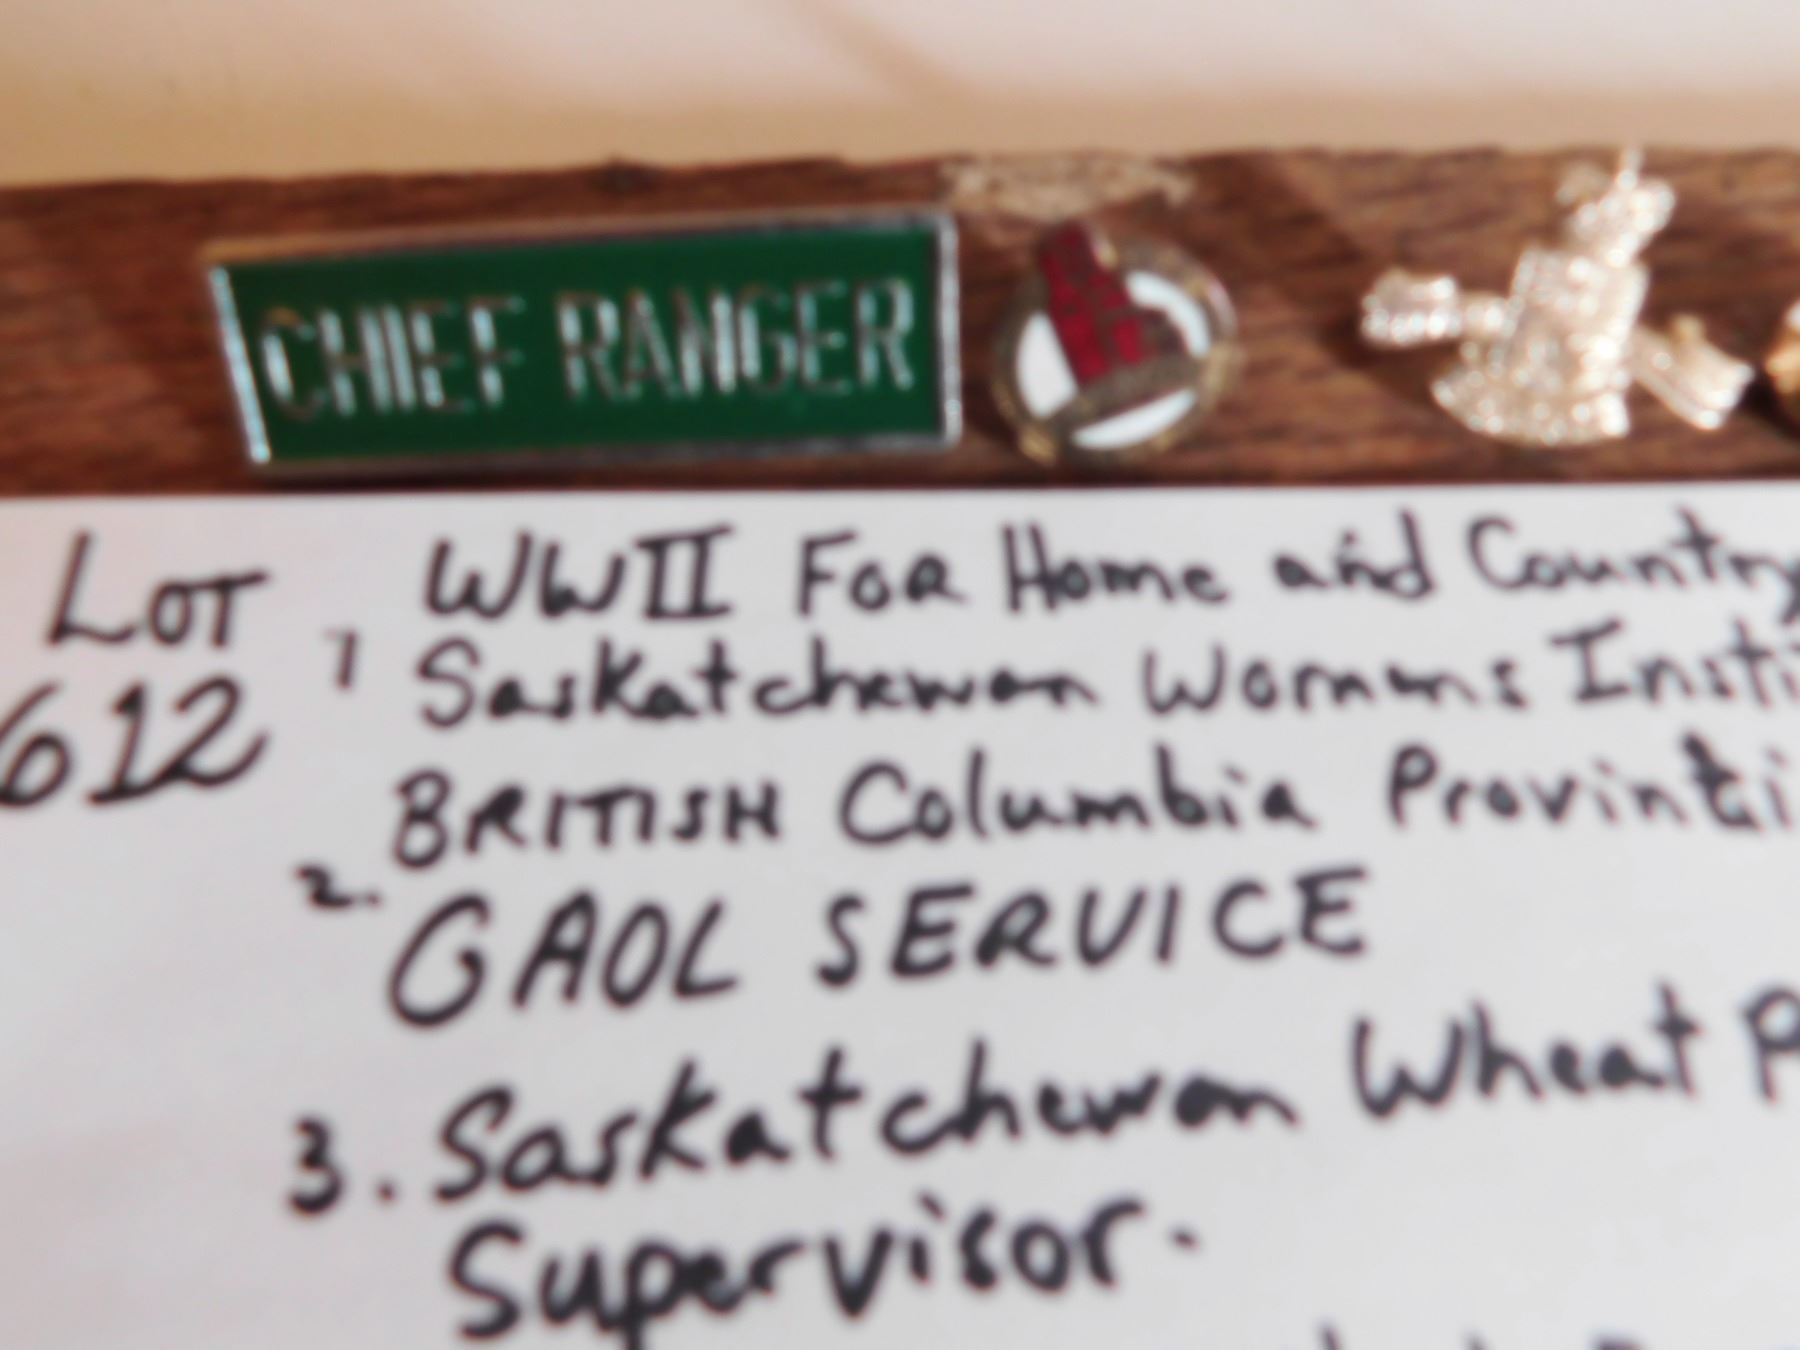 CHIEF RANGER
LOT
612
1 WWII FOR Home and Country
Saskatchewan Womens Insti
BRITISH Columbia Provinti
2. GAOL SERVICE
3. Saskatchewan Wheat P
Supervisor.